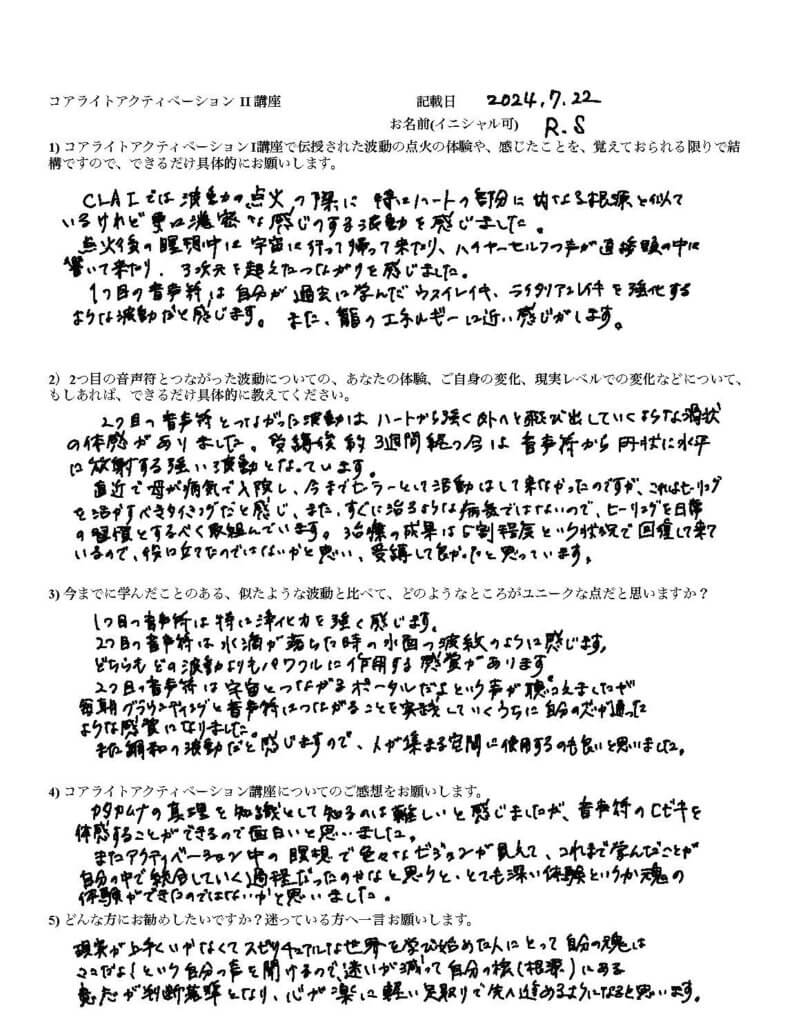 コアライトアクティベーション II 講座　記載日　2024.7.22
お名前(イニシャル可)　R.S
1) コアライトアクティベーションI講座で伝授された波動の点火の体験や、感じたことを、覚えておられる限りで結
構ですので、できるだけ具体的にお願いします。
CLA Iでは波動の点火の際に特にハートの部分に内なる根源と似て
いるけれど更に濃密な感じのする波動を感じました。
点火後の瞑想中に宇宙に行って帰って来たり、ハイヤーセルフの声が直接頭の中に
響いて来たり、3次元を超えたつながりを感じました。
1つ目の音声符は自分が過去に学んだウスイレイキ、ライタリアンレイキを強化する
ような波動だと感じます。また、龍のエネルギーに近い感じがします。
2）2つ目の音声符とつながった波動についての、あなたの体験、ご自身の変化、現実レベルでの変化などについて、
もしあれば、できるだけ具体的に教えてください。
2つ目の音声符とつながった波動はハートから強く外へと飛び出していくような渦状
の体感がありました。受講後約3週間経つ今は音声符から円状に水平
に放射する強い波動となっています。
直近で母が病気で入院し、今までヒーラーとして活動はして来なかったのですが、これはヒーリング
を活かすべきタイミングだと感じ、また、すぐに治るような病気ではないので、ヒーリングを日常
の習慣とするべく取組んでいます。治療の成果は5割程度という状況で回復して来て
いるので、役に立てたのではないかと思い、受講して良かったと思っています。
3) 今までに学んだことのある、似たような波動と比べて、どのようなところがユニークな点だと思いますか？
1つ目の音声符は特に浄化力を強く感じます。
2つ目の音声符は水滴が落ちた時の水面の波紋のように感じます。
どちらもどの波動よりもパワフルに作用する感覚があります
2つ目の音声符は宇宙とつながるポータルだよという声が聴こえましたが
毎朝グラウンディングと音声符につながることを実践していくうちに自分の芯が通った
ような感覚になりました。
また調和の波動だと感じますので、人が集まる空間に使用するのも良いと思いました。
4) コアライトアクティベーション講座についてのご感想をお願いします。
カタカムナの真理を知識として知るのは難しいと感じましたが、音声符のヒビキを
体感することができるので面白いと思いました。
またアクティベーション中の瞑想で色々なビジョンが見えて、これまで学んだことが
自分の中で統合していく過程だったのかなと思うと、とても深い体験というか魂の
体験ができたのではないかと思いました。
5) どんな方にお勧めしたいですか？迷っている方へ一言お願いします。
現実が上手くいかなくてスピリチュアルな世界を学び始めた人にとって自分の魂は
ココだよ！という自分の声を聞けるので、迷いが減って自分の核(根源)にある
意志が判断基準となり、心が楽に軽い足取りで先へ進めるようになると思います。